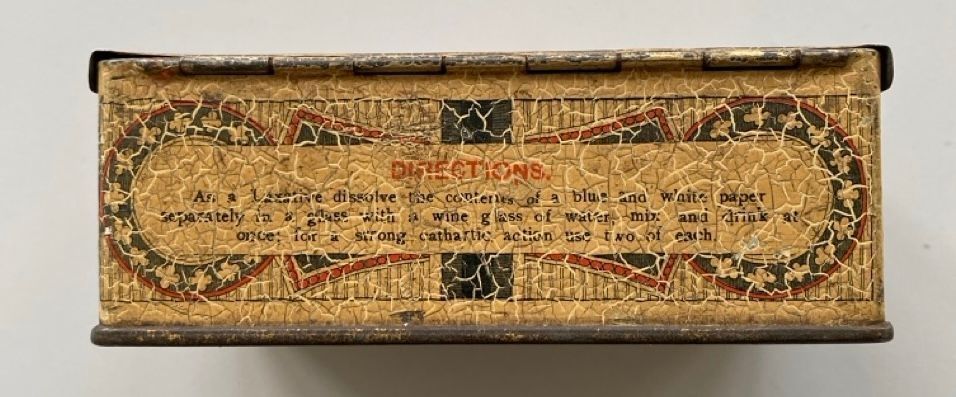 DIRECTIONS.
As a Laxative dissolve the contents of a blue and white paper
separately in a glass with a wine glass of water, mix and drink at
once; for a strong cathartic action use two of each.